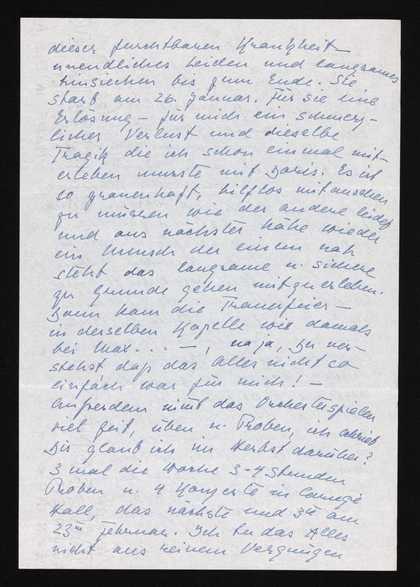 dieser furchtbaren Krankheit –
unendliches Leiden und langsames
hinsiechen bis zum Ende. Sie
starb am 26. Januar. Für sie eine
Erlösung – für mich ein schmerz-
licher Verlust und dieselbe
Tragik die ich schon einmal mit-
erleben musste mit Doris. Es ist
so grauenhaft, hilflos mitansehen
zu müssen wie der andere leidet
und aus nächster Nähe wieder
ein Mensch der einem nah
steht das langsame u. sichere
zu Grunde gehen mitzuerleben.
Dann kam die Trauerfeier –
in derselben Kapelle wie damals
bei Max... –, na ja, Du ver-
stehst daß das alles nicht so
einfach war für mich! –
Außerdem nimt das Orchesterspielen
viel Zeit, üben u. Proben, ich schrieb
Dir glaub ich im Herbst darüber?
3 mal die Woche 3-4 Stunden
Proben u. 4 Konzerte in Carnegie
Hall, das nächste und 3te am
23ten Februar. Ich tu das Alles
nicht aus reinem Vergnügen